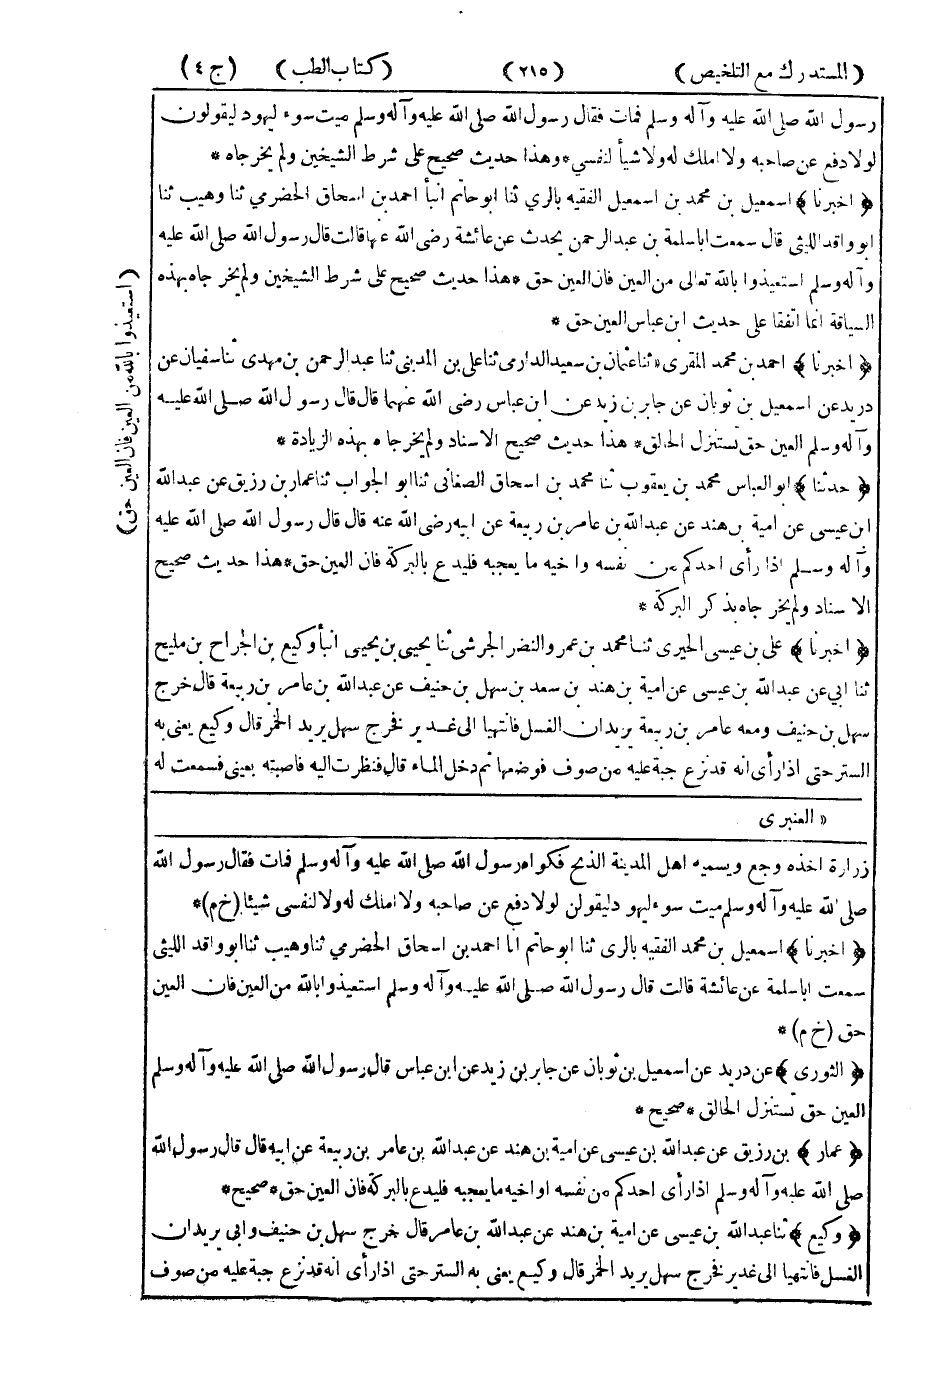 (المستدرك مع التلخيص) (٢١٥) (كتاب الطب) (ج ٤)
رسول الله صلى الله عليه وآله وسلم فمات فقال رسول الله صلى الله عليه وآله وسلم ميت سوء ليهود ليقولون
لولا دفع عن صاحبه ولا املك له ولا شيأ لنفسي * وهذا حديث صحيح على شرط الشيخين ولم يخرجاه *
﴿ اخبرنا ﴾ اسمعيل بن محمد بن اسمعيل الفقيه بالري ثنا ابو حاتم انبأ احمد بن اسحاق الحضرمي ثنا وهيب ثنا
ابو واقد الليثي قال سمعت ابا سلمة بن عبد الرحمن يحدث عن عائشة رضى الله عنها قالت قال رسول الله صلى الله عليه
وآله وسلم استعيذوا بالله تعالى من العين فان العين حق * هذا حديث صحيح على شرط الشيخين ولم يخرجاه بهذه
السياقة انما اتفقا على حديث ابن عباس العين حق *
﴿ اخبرنا ﴾ احمد بن محمد المقرى « ثنا عثمان بن سعيد الدارمى ثنا على بن المدينى ثنا عبد الرحمن بن مهدى ثنا سفيان عن
دريد عن اسمعيل بن ثوبان عن جابر بن زيد عن ابن عباس رضى الله عنهما قال قال رسول الله صلى الله عليه
وآله وسلم العين حق تستنزل الحالق * هذا حديث صحيح الاسناد ولم يخرجاه بهذه الزيادة *
﴿ حدثنا ﴾ ابو العباس محمد بن يعقوب ثنا محمد بن اسحاق الصغانى ثنا ابو الجواب ثنا عمار بن رزيق عن عبد الله
ابن عيسى عن امية بن هند عن عبد الله بن عامر بن ربيعة عن ابيه رضى الله عنه قال قال رسول الله صلى الله عليه
وآله وسلم اذا رأى احدكم من نفسه واخيه ما يعجبه فليدع بالبركة فان العين حق * هذا حديث صحيح
الاسناد ولم يخرجاه بذكر البركة *
﴿ اخبرنا ﴾ على بن عيسى الحيرى ثنا محمد بن عمر والنضر الجرشى ثنا يحيى بن يحيى انبأ وكيع بن الجراح بن مليح
ثنا ابي عن عبد الله بن عيسى عن امية بن هند بن سعد بن سهل بن حنيف عن عبد الله بن عامر بن ربيعة قال خرج
سهل بن حنيف ومعه عامر بن ربيعة يريدان الغسل فانتهيا الى غدير فخرج سهل يريد الخمر قال وكيع يعنى به
الستر حتى اذا رأى انه قد نزع جبة عليه من صوف فوضعها ثم دخل الماء قال فنظرت اليه فاصبته بعينى فسمعت له
(استعيذوا بالله من العين فان العين حق)
« العنبرى
زرارة اخذه وجع ويسميه اهل المدينة الذبح فكواه رسول الله صلى الله عليه وآله وسلم فمات فقال رسول الله
صلى الله عليه وآله وسلم ميت سوء ليهود ليقولن لولا دفع عن صاحبه ولا املك له ولا لنفسى شيئا (خ م) *
﴿ اخبرنا ﴾ اسمعيل بن محمد الفقيه بالرى ثنا ابو حاتم انا احمد بن اسحاق الحضرمي ثنا وهيب ثنا ابو واقد الليثى
سمعت ابا سلمة عن عائشة قالت قال رسول الله صلى الله عليه وآله وسلم استعيذوا بالله من العين فان العين
حق (خ م) *
﴿ الثورى ﴾ عن دريد عن اسمعيل بن ثوبان عن جابر بن زيد عن ابن عباس قال رسول الله صلى الله عليه وآله وسلم
العين حق تستنزل الحالق * صحيح *
﴿ عمار ﴾ بن رزيق عن عبد الله بن عيسى عن امية بن هند عن عبد الله بن عامر بن ربيعة عن ابيه قال قال رسول الله
صلى الله عليه وآله وسلم اذا رأى احدكم من نفسه او اخيه ما يعجبه فليدع بالبركة فان العين حق * صحيح *
﴿ وكيع ﴾ ثنا عبد الله بن عيسى عن امية بن هند عن عبد الله بن عامر قال خرج سهل بن حنيف وابي يريدان
الغسل فانتهيا الى غدير فخرج سهل يريد الخمر قال وكيع يعنى به الستر حتى اذا رأى انه قد نزع جبة عليه من صوف